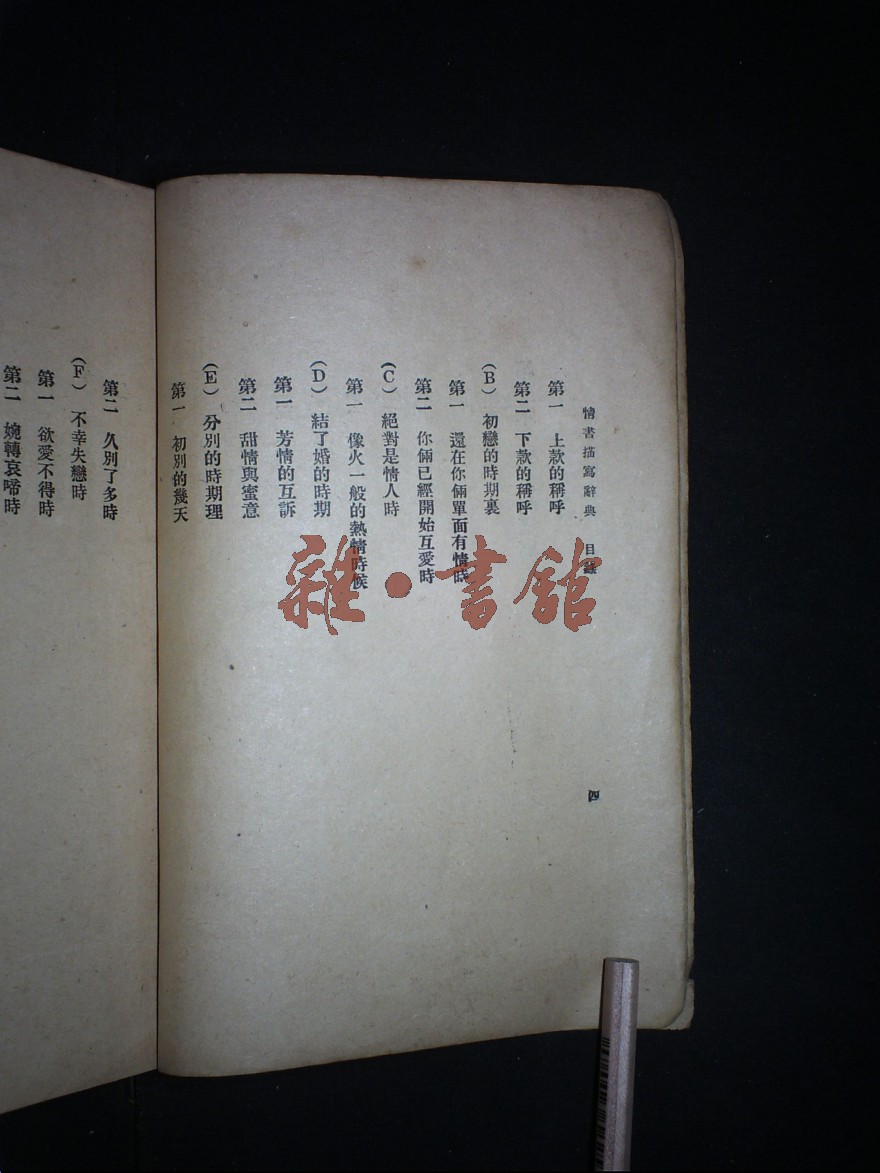 情書描寫辭典 目錄
四
第一 上款的稱呼
第二 下款的稱呼
(B) 初戀的時期裏
第一 還在你倆單面有情時
第二 你倆已經開始互愛時
(C) 絕對是情人時
第一 像火一般的熱情時候
(D) 結了婚的時期
第一 芳情的互訴
第二 甜情與蜜意
(E) 分別的時期理
第一 初別的幾天
第二 久別了多時
(F) 不幸失戀時
第一 欲愛不得時
第二 婉轉哀啼時
雜·書館